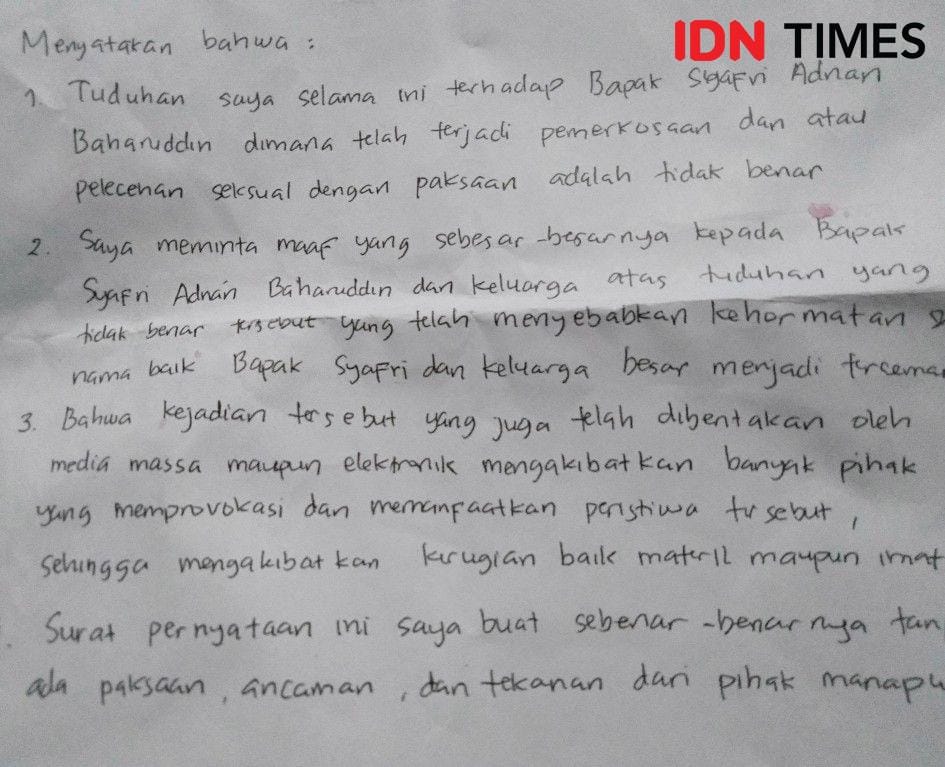 IDN TIMES
Menyatakan bahwa :
1. Tuduhan saya selama ini terhadap Bapak Syafri Adnan
Baharuddin dimana telah terjadi pemerkosaan dan atau
pelecehan seksual dengan paksaan adalah tidak benar
2. Saya meminta maaf yang sebesar-besarnya kepada Bapak
Syafri Adnan Baharuddin dan keluarga atas tuduhan yang
tidak benar tersebut yang telah menyebabkan kehormatan
nama baik Bapak Syafri dan keluarga besar menjadi tercema
3. Bahwa kejadian tersebut yang juga telah dibentakan oleh
media massa maupun elektronik mengakibatkan banyak pihak
yang memprovokasi dan memanfaatkan peristiwa tersebut,
sehingga mengakibatkan kerugian baik materil maupun imat
Surat pernyataan ini saya buat sebenar-benarnya tan
ada paksaan, ancaman, dan tekanan dari pihak manapu